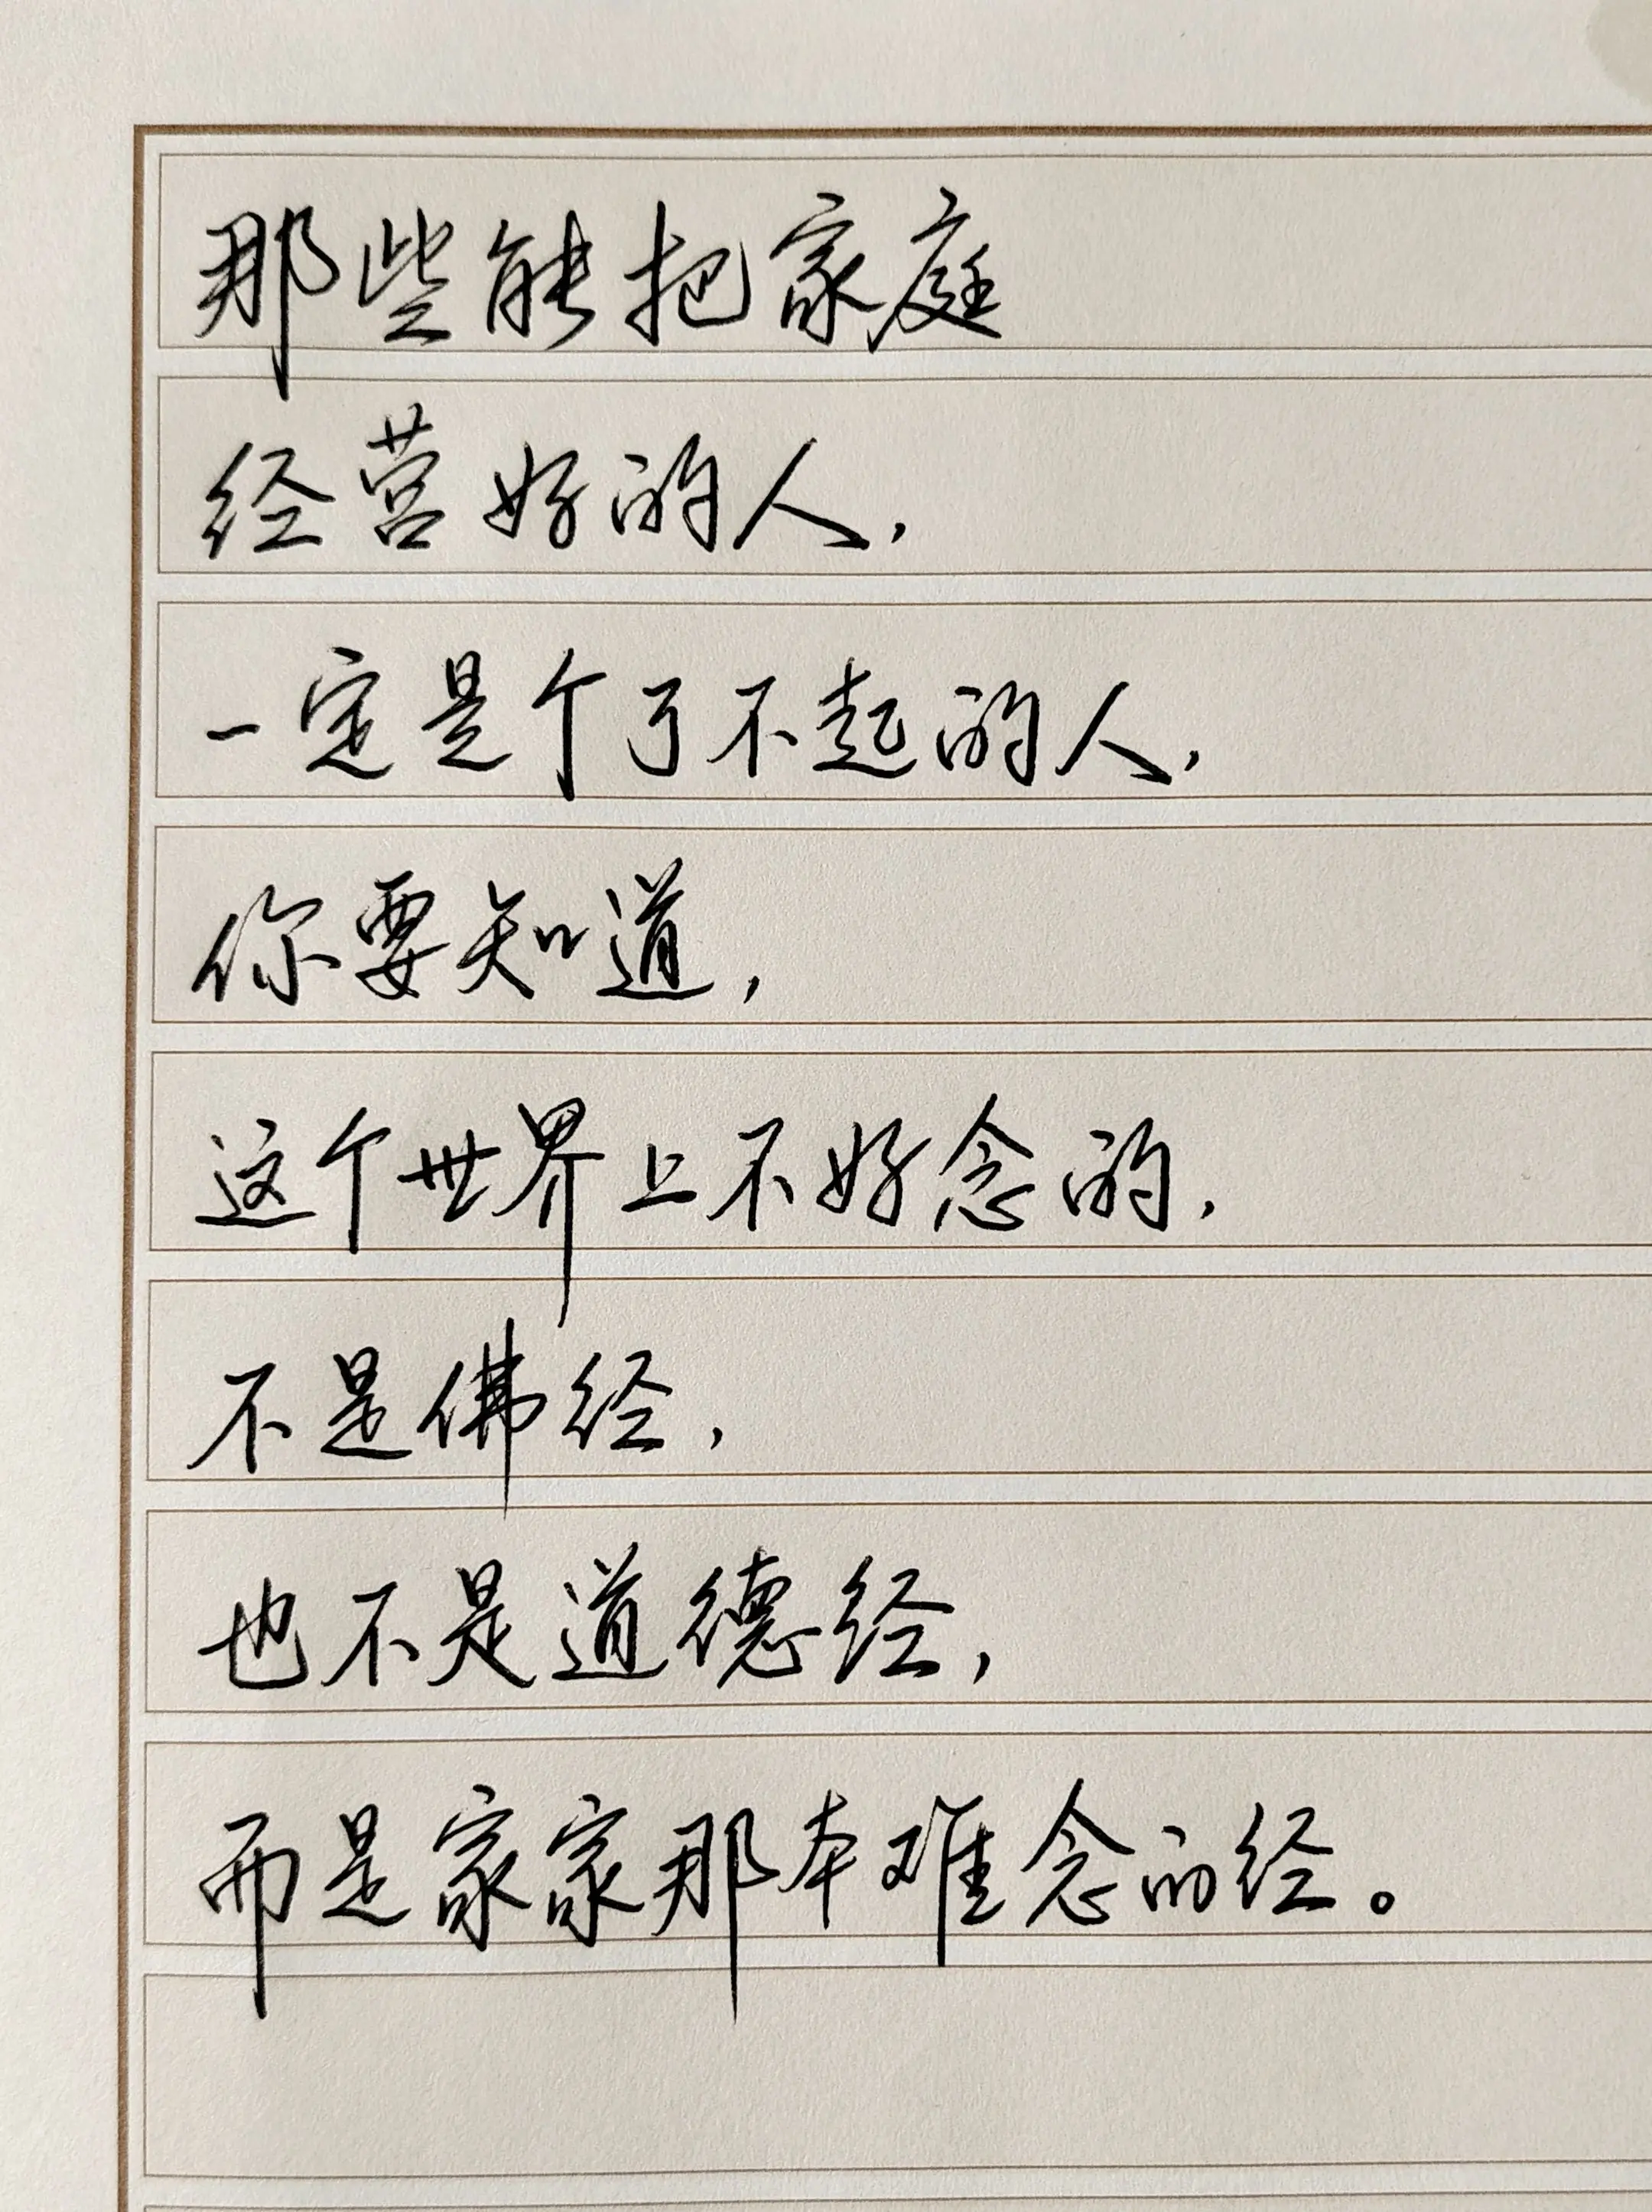 那些能把家庭
经营好的人，
一定是个了不起的人，
你要知道，
这个世界上不好念的，
不是佛经，
也不是道德经，
而是家家那本难念的经。